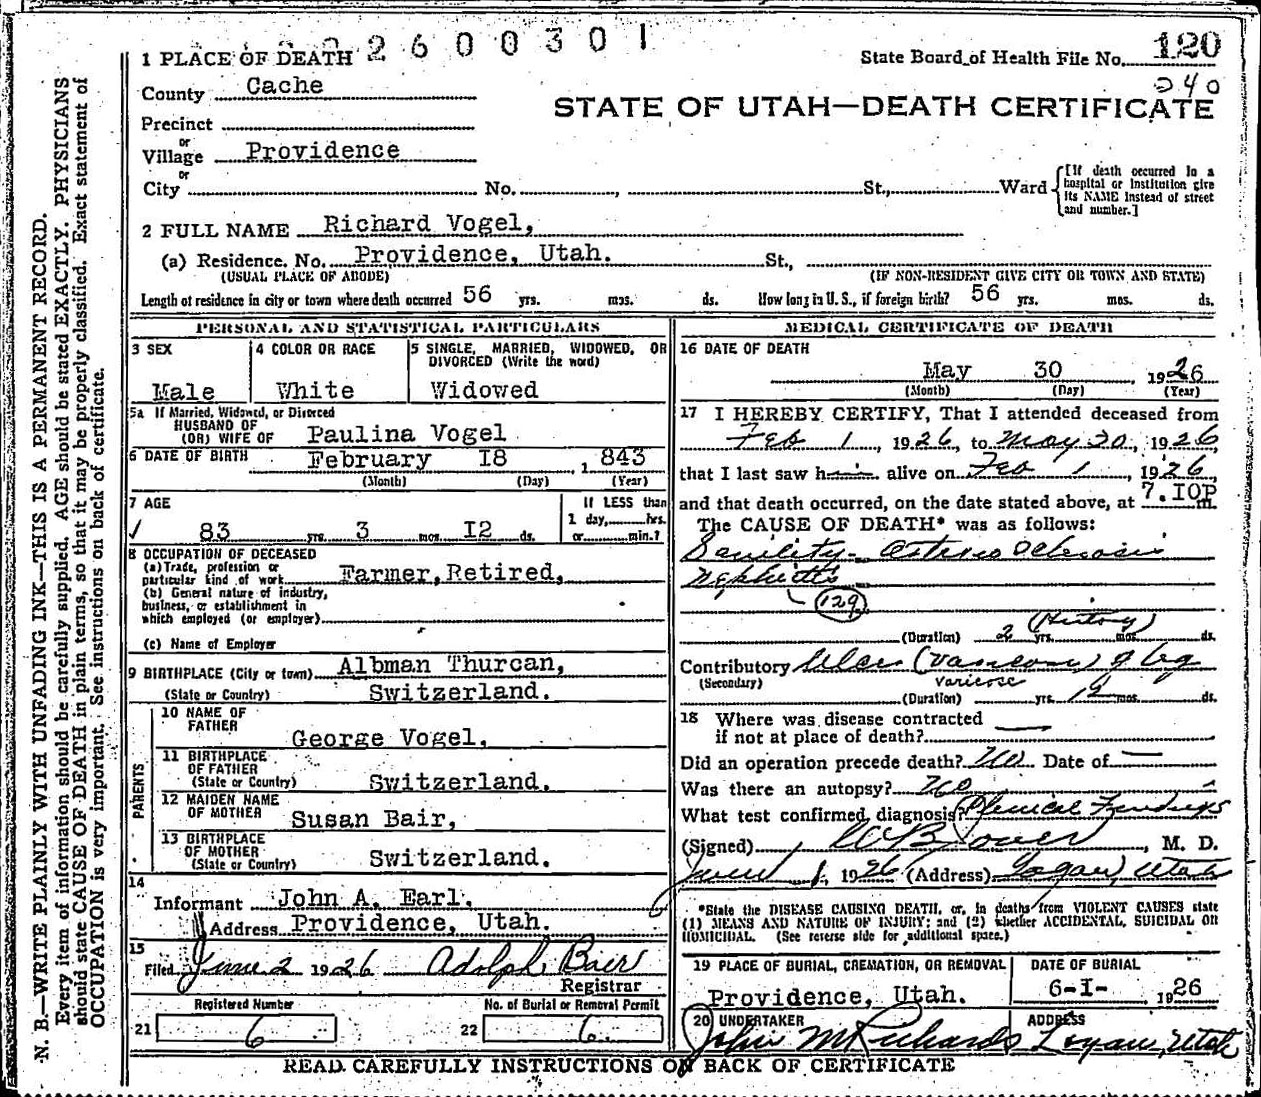 2600301
1 PLACE OF DEATH
State Board of Health File No. 120
240
County Cache
STATE OF UTAH—DEATH CERTIFICATE
Precinct
or
Village Providence
or
City No. , St., Ward
[If death occurred in a hospital or institution give its NAME instead of street and number.]
2 FULL NAME Richard Vogel,
(a) Residence. No. Providence, Utah. St.,
(USUAL PLACE OF ABODE) (IF NON-RESIDENT GIVE CITY OR TOWN AND STATE)
Length of residence in city or town where death occurred 56 yrs. mos. ds. How long in U. S., if foreign birth? 56 yrs. mos. ds.
PERSONAL AND STATISTICAL PARTICULARS
3 SEX
Male
4 COLOR OR RACE
White
5 SINGLE, MARRIED, WIDOWED, OR
DIVORCED (Write the word)
Widowed
5a If Married, Widowed, or Divorced
HUSBAND OF
(OR) WIFE OF Paulina Vogel
6 DATE OF BIRTH February I8 , 1843
(Month) (Day) (Year)
7 AGE
√ 83 yrs. 3 mos. I2 ds.
If LESS than
1 day, hrs.
or min.?
8 OCCUPATION OF DECEASED
(a) Trade, profession or
particular kind of work Farmer, Retired,
(b) General nature of industry,
business, or establishment in
which employed (or employer)
(c) Name of Employer
9 BIRTHPLACE (City or town) Albman Thurcan,
(State or Country) Switzerland.
PARENTS
10 NAME OF
FATHER
George Vogel,
11 BIRTHPLACE
OF FATHER
(State or Country) Switzerland.
12 MAIDEN NAME
OF MOTHER Susan Bair,
13 BIRTHPLACE
OF MOTHER
(State or Country) Switzerland.
14
Informant John A. Earl.
Address Providence, Utah.
15
Filed June 2 1926 Adolph Baer
Registrar
Registered Number
21 6
No. of Burial or Removal Permit
22 6
MEDICAL CERTIFICATE OF DEATH
16 DATE OF DEATH
May 30 1926
(Month) (Day) (Year)
17 I HEREBY CERTIFY, That I attended deceased from
Feb 1, 1926, to May 30, 1926
that I last saw him alive on Feb 1, 1926,
and that death occurred, on the date stated above, at 7.IOP m.
The CAUSE OF DEATH* was as follows:
Senility- Arterio sclerosis
Nephritis
129
(History)
(Duration) 2 yrs. mos. ds.
Contributory Ulcer of leg
(Secondary) varicose
(Duration) yrs. mos. ds.
18 Where was disease contracted
if not at place of death? —
Did an operation precede death? No Date of —
Was there an autopsy? No
What test confirmed diagnosis? Clinical Findings
(Signed) , M. D.
June 1, 1926 (Address) Logan, Utah
*State the DISEASE CAUSING DEATH, or, in deaths from VIOLENT CAUSES state
(1) MEANS AND NATURE OF INJURY; and (2) whether ACCIDENTAL, SUICIDAL OR
HOMICIDAL. (See reverse side for additional space.)
19 PLACE OF BURIAL, CREMATION, OR REMOVAL
Providence, Utah.
DATE OF BURIAL
6-I- 1926
20 UNDERTAKER
John M Richards
ADDRESS
Logan, Utah
READ CAREFULLY INSTRUCTIONS ON BACK OF CERTIFICATE
N. B.—WRITE PLAINLY WITH UNFADING INK—THIS IS A PERMANENT RECORD.
Every item of information should be carefully supplied. AGE should be stated EXACTLY. PHYSICIANS
should state CAUSE OF DEATH in plain terms, so that it may be properly classified. Exact statement of
OCCUPATION is very important. See instructions on back of certificate.